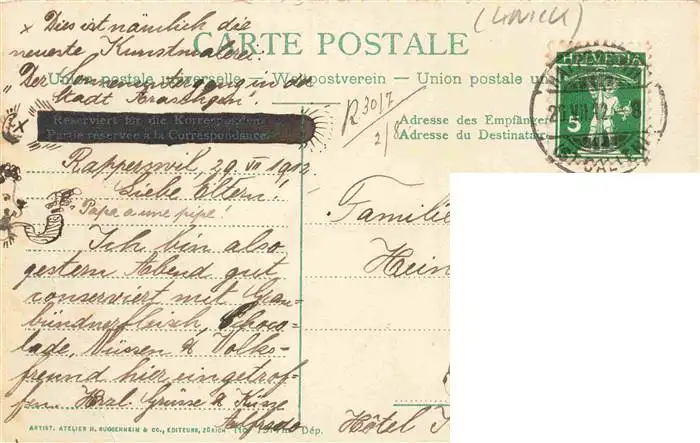 (ZÜRICH)
x Dies ist nämlich die
neueste Kunstmalerei:
"Der Sonnenuntergang in der
Stadt
CARTE POSTALE
Union postale universelle – Weltpostverein – Union postale un
HELVETIA
5
Reserviert für die Korrespondenz
Partie réservée à la Correspondance
R 30/7
2/8
Adresse des Empfänger
Adresse du Destinatair
x
Rapperswil, 29. VII 1912
Liebe Eltern!
Papa a une pipe!
Ich bin also
gestern Abend gut
conserviert mit Grau-
bündnerfleisch, Choco-
lade, Nüssen & Volks-
freund hier eingetrof-
fen. Herzl. Grüsse & Küsse
Alfredo
Familie
Hein
Hôtel
ARTIST. ATELIER H. GUGGENHEIM & CO., EDITEURS, ZÜRICH No. Dép.